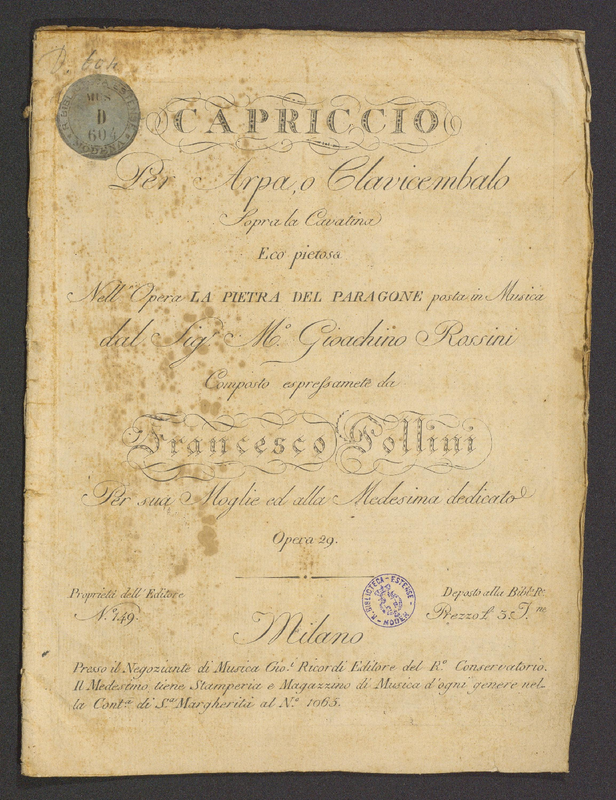 D. 604
R. BIBLIOTECA ESTENSE
MUS
D
604
MODENA
CAPRICCIO
Per Arpa, o Clavicembalo
Sopra la Cavatina
Eco pietosa
Nell' Opera LA PIETRA DEL PARAGONE posta in Musica
dal Sigr. Mo. Gioachino Rossini
Composto espressamete da
Francesco Pollini
Per sua Moglie ed alla Medesima dedicato
Opera 29.
Proprietà dell' Editore
Deposto alla Bibla. Re.
R. BIBLIOTECA - ESTENSE - MODENA
No. 149.
Prezzo L. 3.
Milano
Presso il Negoziante di Musica Gio. Ricordi Editore del Ro. Conservatorio.
Il Medesimo tiene Stamperia e Magazzino di Musica d'ogni genere nel-
la Conta. di Sa. Margherita al No. 1065.